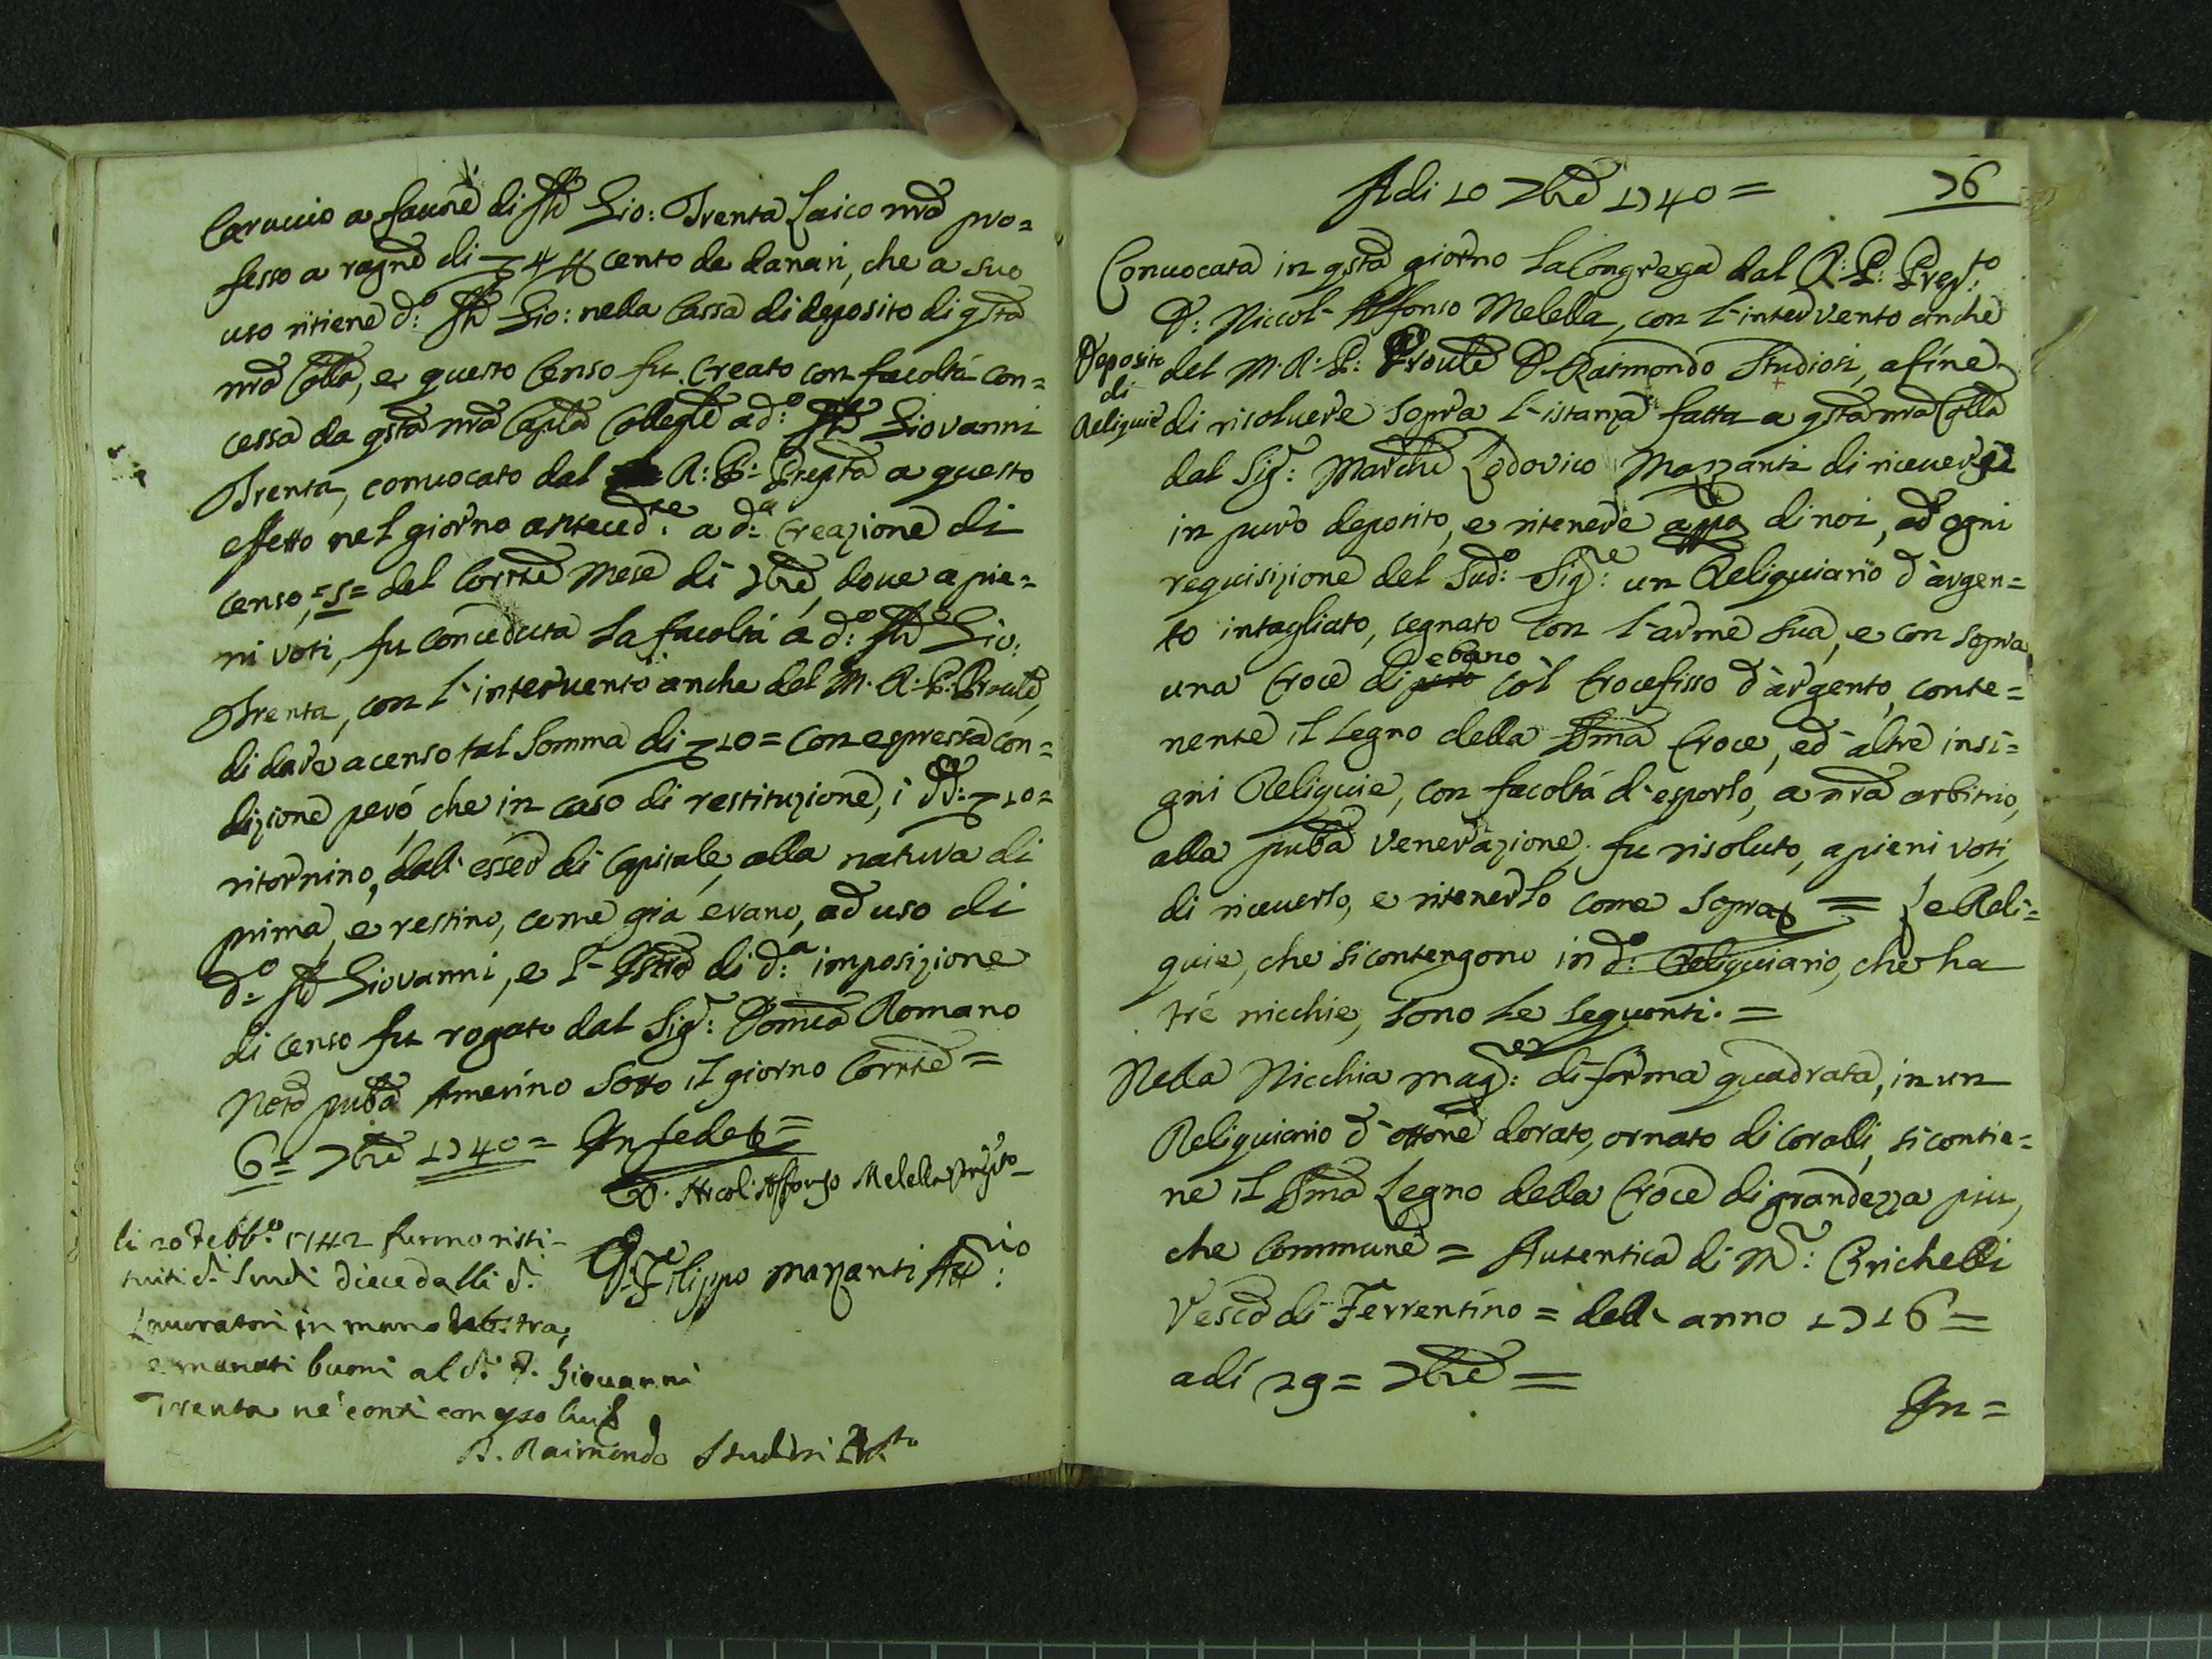 Caruccio a favore di frō Gio: Trenta Laico nrō pro=
fesso a ragne di 4 cento de danari, che a suo
uso ritiene d:o frō Gio: nella Cassa di deposito di qstā
nrā Collā, e questo Censo fu creato con facoltà con=
cessa da qstā nrā Caplā Collegle a d:o frō Giovanni
Trenta, convocato dal R: P: Prepto a questo
effetto nel giorno anteced:te a d:a Creazione di
censo, =5= del Corrte Mese di 7bre, dove a pie=
ni voti, fu conceduta la facoltà a d:o frō Gio:
Trenta, con l'intervento anche del M. R. P. Proule,
di dare a censo tal Somma di 10= con espressa con=
dizione però, che in caso di restituzione, i dd: 10=
ritornino, dall'esser di Capitale, alla natura di
prima, e restino, come già erano, ad uso di
d:o frō Giovanni, e l'Istro di d:a imposizione
di censo fu rogato dal Sigr: Domco Romano
Noto pubō Amerino Sotto il giorno Corrte =
6= 7bre 1740= In fede
D. Nicol. Alfonso Melella Prepto
D. Filippo Mazzanti Att:rio
li 20 Febb:o 1742 furno risti-
tuiti d:i Scudi diece dalli d:i
Lavoratori in mano nostra,
e menati buoni al d:o F. Giovanni
Trenta ne' conti con esso lui
D. Raimondo Studiosi Prto
76
Adi 10 7bre 1740 =
Convocata in qstō giorno la Congrega dal R: P: Prep:to
D: Niccol- Alfonso Melella, con l'intervento anche
Deposito
di
Reliquie
del M. R. P. Proule D Raimondo Studiosi, a fine
di risolvere sopra l'istanza fatta a qstā nrā Collā
dal Sigr: Marche Lodovico Mazzanti di ricevere
in puro deposito, e ritenere appo di noi, ad ogni
requisizione del Sud:o Sig:re un Reliquiario d'argen=
to intagliato, segnato con l'arme sua, e con sopra
una Croce di pero ebano col Crocefisso d'argento, conte=
nente il Legno della Ssma Croce, ed altre insi=
gni Reliquie, con facoltà d'esporlo, a nrō arbitrio,
alla pubā venerazione; fu risoluto, a pieni voti,
di riceverlo, e ritenerlo come sopra = Le Reli=
quie, che si contengono in d:o Reliquiario, che ha
tré nicchie, sono le seguenti. =
Nella Nicchia mag:re di forma quadrata, in un
Reliquiario d'ottone dorato, ornato di coralli, si contie=
ne il Ssmo Legno della Croce di grandezza piu,
che Commune = Autentica di Mr: Brichelli
Vesco di Ferrentino = dell'anno 1716 =
adì 29 = 7bre =
In =